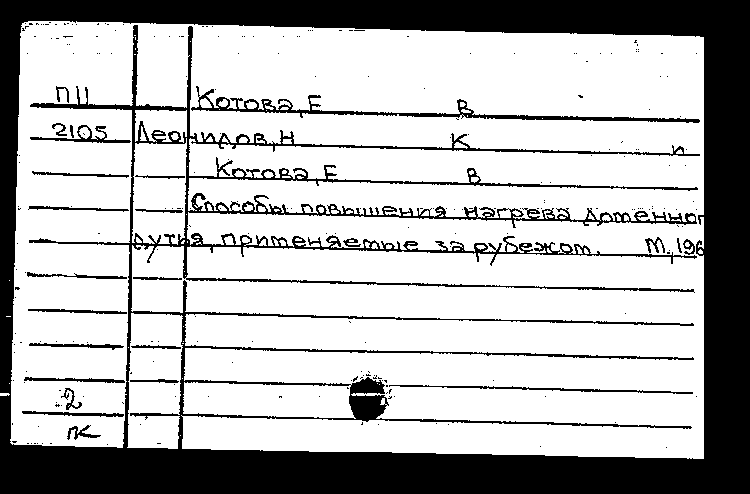 П11 Котова, Е В
2105 Леонидов, Н К и
Котова, Е В
Способы повышения нагрева доменног
дутья, применяемые за рубежом. М., 196
2
пк